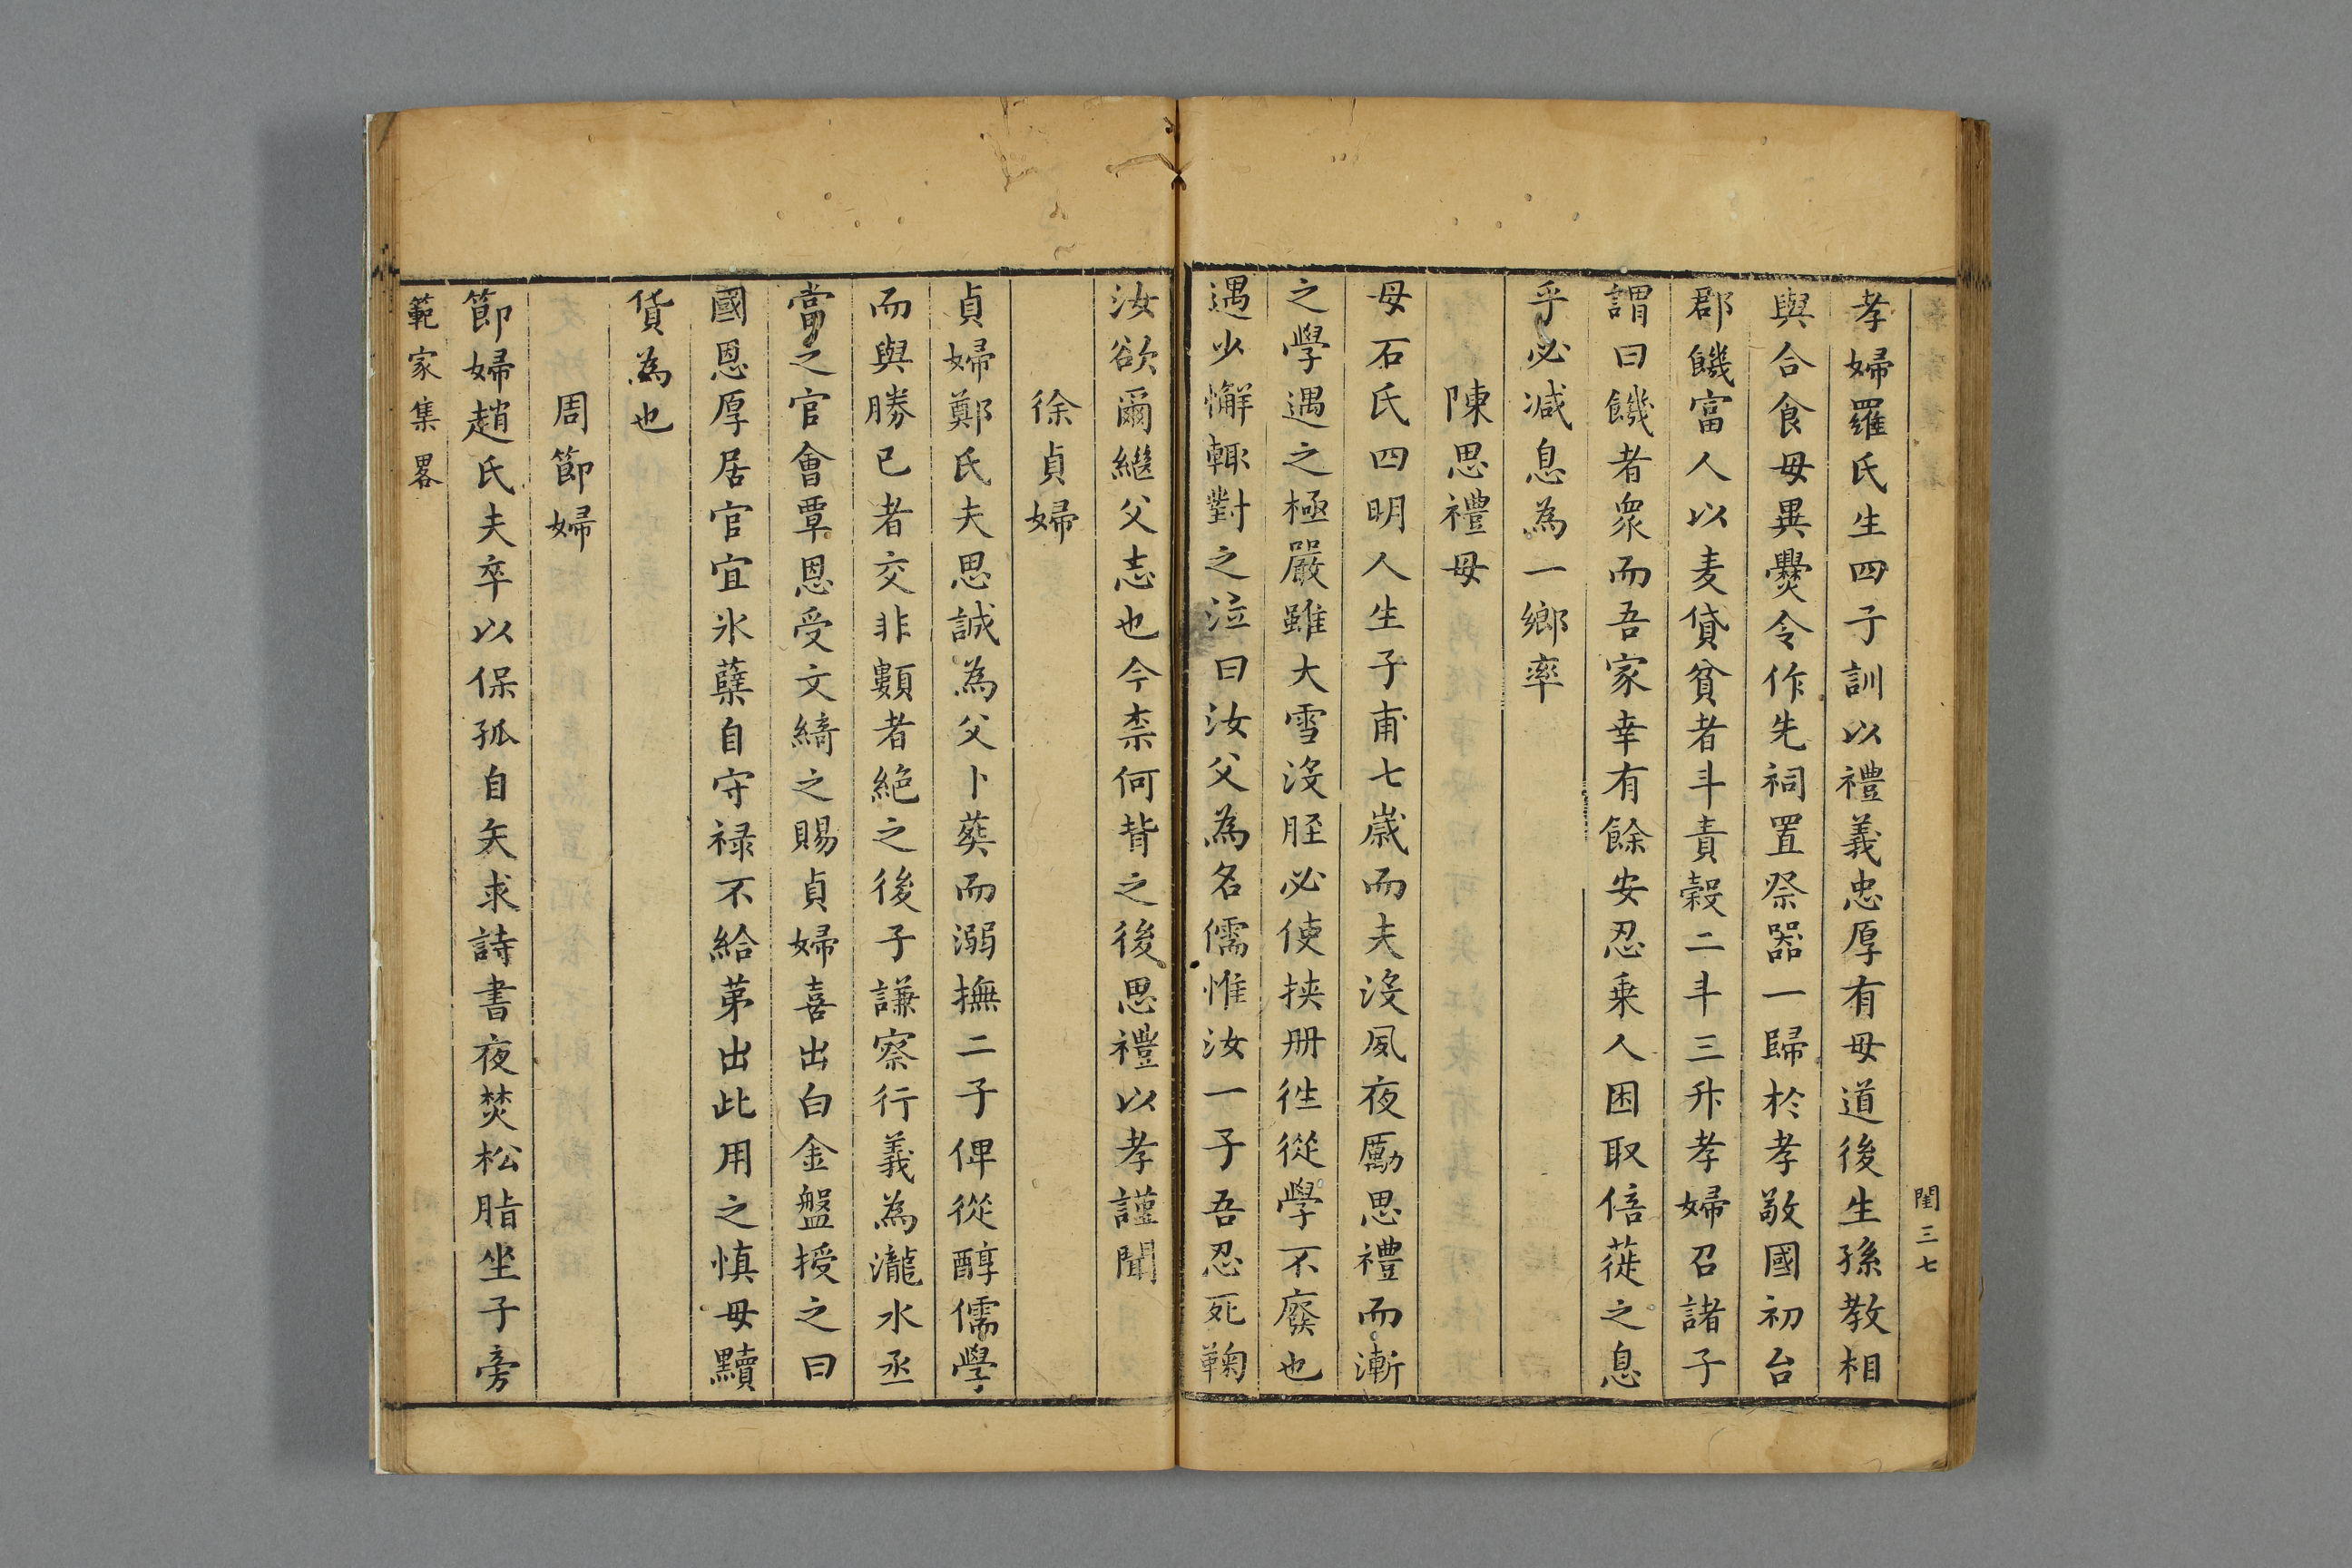 閨三七
孝婦羅氏生四子訓以禮義忠厚有母道後生孫教相
與合食毋異爨令作先祠置祭器一歸於孝敬國初台
郡饑富人以麦貸貧者斗責穀二斗三升孝婦召諸子
謂曰饑者衆而吾家幸有餘安忍乗人困取倍蓰之息
乎必减息為一鄉率
陳思禮母
母石氏四明人生子甫七歲而夫沒夙夜勵思禮而漸
之學遇之極嚴雖大雪沒胫必使挟册徃從學不廢也
遇少懈輙對之泣曰汝父為名儒惟汝一子吾忍死鞠
汝欲爾繼父志也今柰何背之後思禮以孝謹聞
徐貞婦
貞婦鄭氏夫思誠為父卜葬而溺撫二子俾從醇儒學
而與勝己者交非類者絕之後子謙察行義為瀧水丞
當之官會覃恩受文綺之賜貞婦喜出白金盤授之曰
國恩厚居官宜氷蘖自守禄不給苐出此用之慎毋黷
貨為也
周節婦
節婦趙氏夫卒以保孤自矢求詩書夜焚松脂坐子旁
範家集畧